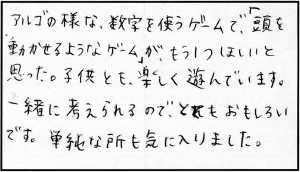 アルゴの様な、数字を使うゲームで、「頭を
動かせるようなゲーム」が、もう1つほしいと
思った。子供とも、楽しく遊んでいます。
一緒に考えられるので、とてもおもしろい
です。単純な所も気に入りました。